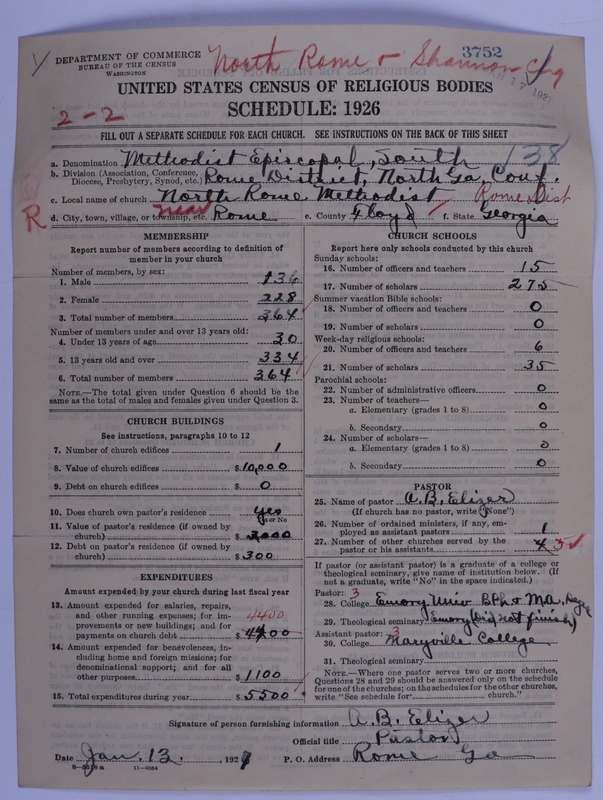 DEPARTMENT OF COMMERCE
BUREAU OF THE CENSUS
WASHINGTON
North Rome & Shannon Chg
3752
UNITED STATES CENSUS OF RELIGIOUS BODIES
SCHEDULE: 1926
2-2
FILL OUT A SEPARATE SCHEDULE FOR EACH CHURCH. SEE INSTRUCTIONS ON THE BACK OF THIS SHEET
138
a. Denomination Methodist Episcopal, South
b. Division (Association, Conference, Diocese, Presbytery, Synod, etc.) Rome District, North Ga. Conf.
c. Local name of church North Rome Methodist Rome Dist
R
d. City, town, village, or township, etc. near Rome e. County Floyd f. State Georgia
MEMBERSHIP
Report number of members according to definition of
member in your church
Number of members, by sex:
1. Male 136
2. Female 228
3. Total number of members 364
Number of members under and over 13 years old:
4. Under 13 years of age 30
5. 13 years old and over 334
6. Total number of members 364
NOTE.—The total given under Question 6 should be
same as the total of males and females given under Question 3.
CHURCH BUILDINGS
See instructions, paragraphs 10 to 12
7. Number of church edifices 1
8. Value of church edifices $ 10,000
9. Debt on church edifices $ 0
10. Does church own pastor's residence? Yes
Yes or No
11. Value of pastor's residence (if owned by
church) $ 3000
12. Debt on pastor's residence (if owned by
church) $ 300
EXPENDITURES
Amount expended by your church during last fiscal year
13. Amount expended for salaries, repairs,
and other running expenses; for im-
provements or new buildings; and for
payments on church debt $ 4400
4400
14. Amount expended for benevolences, in-
cluding home and foreign missions; for
denominational support; and for all
other purposes $ 1100
15. Total expenditures during year $ 5500
CHURCH SCHOOLS
Report here only schools conducted by this church
Sunday schools:
16. Number of officers and teachers 15
17. Number of scholars 275
Summer vacation Bible schools:
18. Number of officers and teachers 0
19. Number of scholars 0
Week-day religious schools:
20. Number of officers and teachers 6
21. Number of scholars 35
Parochial schools:
22. Number of administrative officers 0
23. Number of teachers—
a. Elementary (grades 1 to 8) 0
b. Secondary 0
24. Number of scholars—
a. Elementary (grades 1 to 8) 0
b. Secondary 0
PASTOR
25. Name of pastor A. B. Elizer
(If church has no pastor, write "None")
26. Number of ordained ministers, if any, em-
ployed as assistant pastors 1
27. Number of other churches served by the
pastor or his assistants 4 3
If pastor (or assistant pastor) is a graduate of a college or
theological seminary, give name of institution below. (If
not a graduate, write "No" in the space indicated.)
Pastor: 3
28. College Emory Univ. B.Ph & M.A. Degs
29. Theological seminary Emory (did not finish)
Assistant pastor: 3
30. College Maryville College
31. Theological seminary
NOTE.—Where one pastor serves two or more churches,
Questions 28 and 29 should be answered only on the schedule
for one of the churches; on the schedules for the other churches,
write "See schedule for church."
Signature of person furnishing information A. B. Elizer
Official title Pastor
Date Jan. 13, 1927 P. O. Address Rome Ga
8—5518a 11—9564